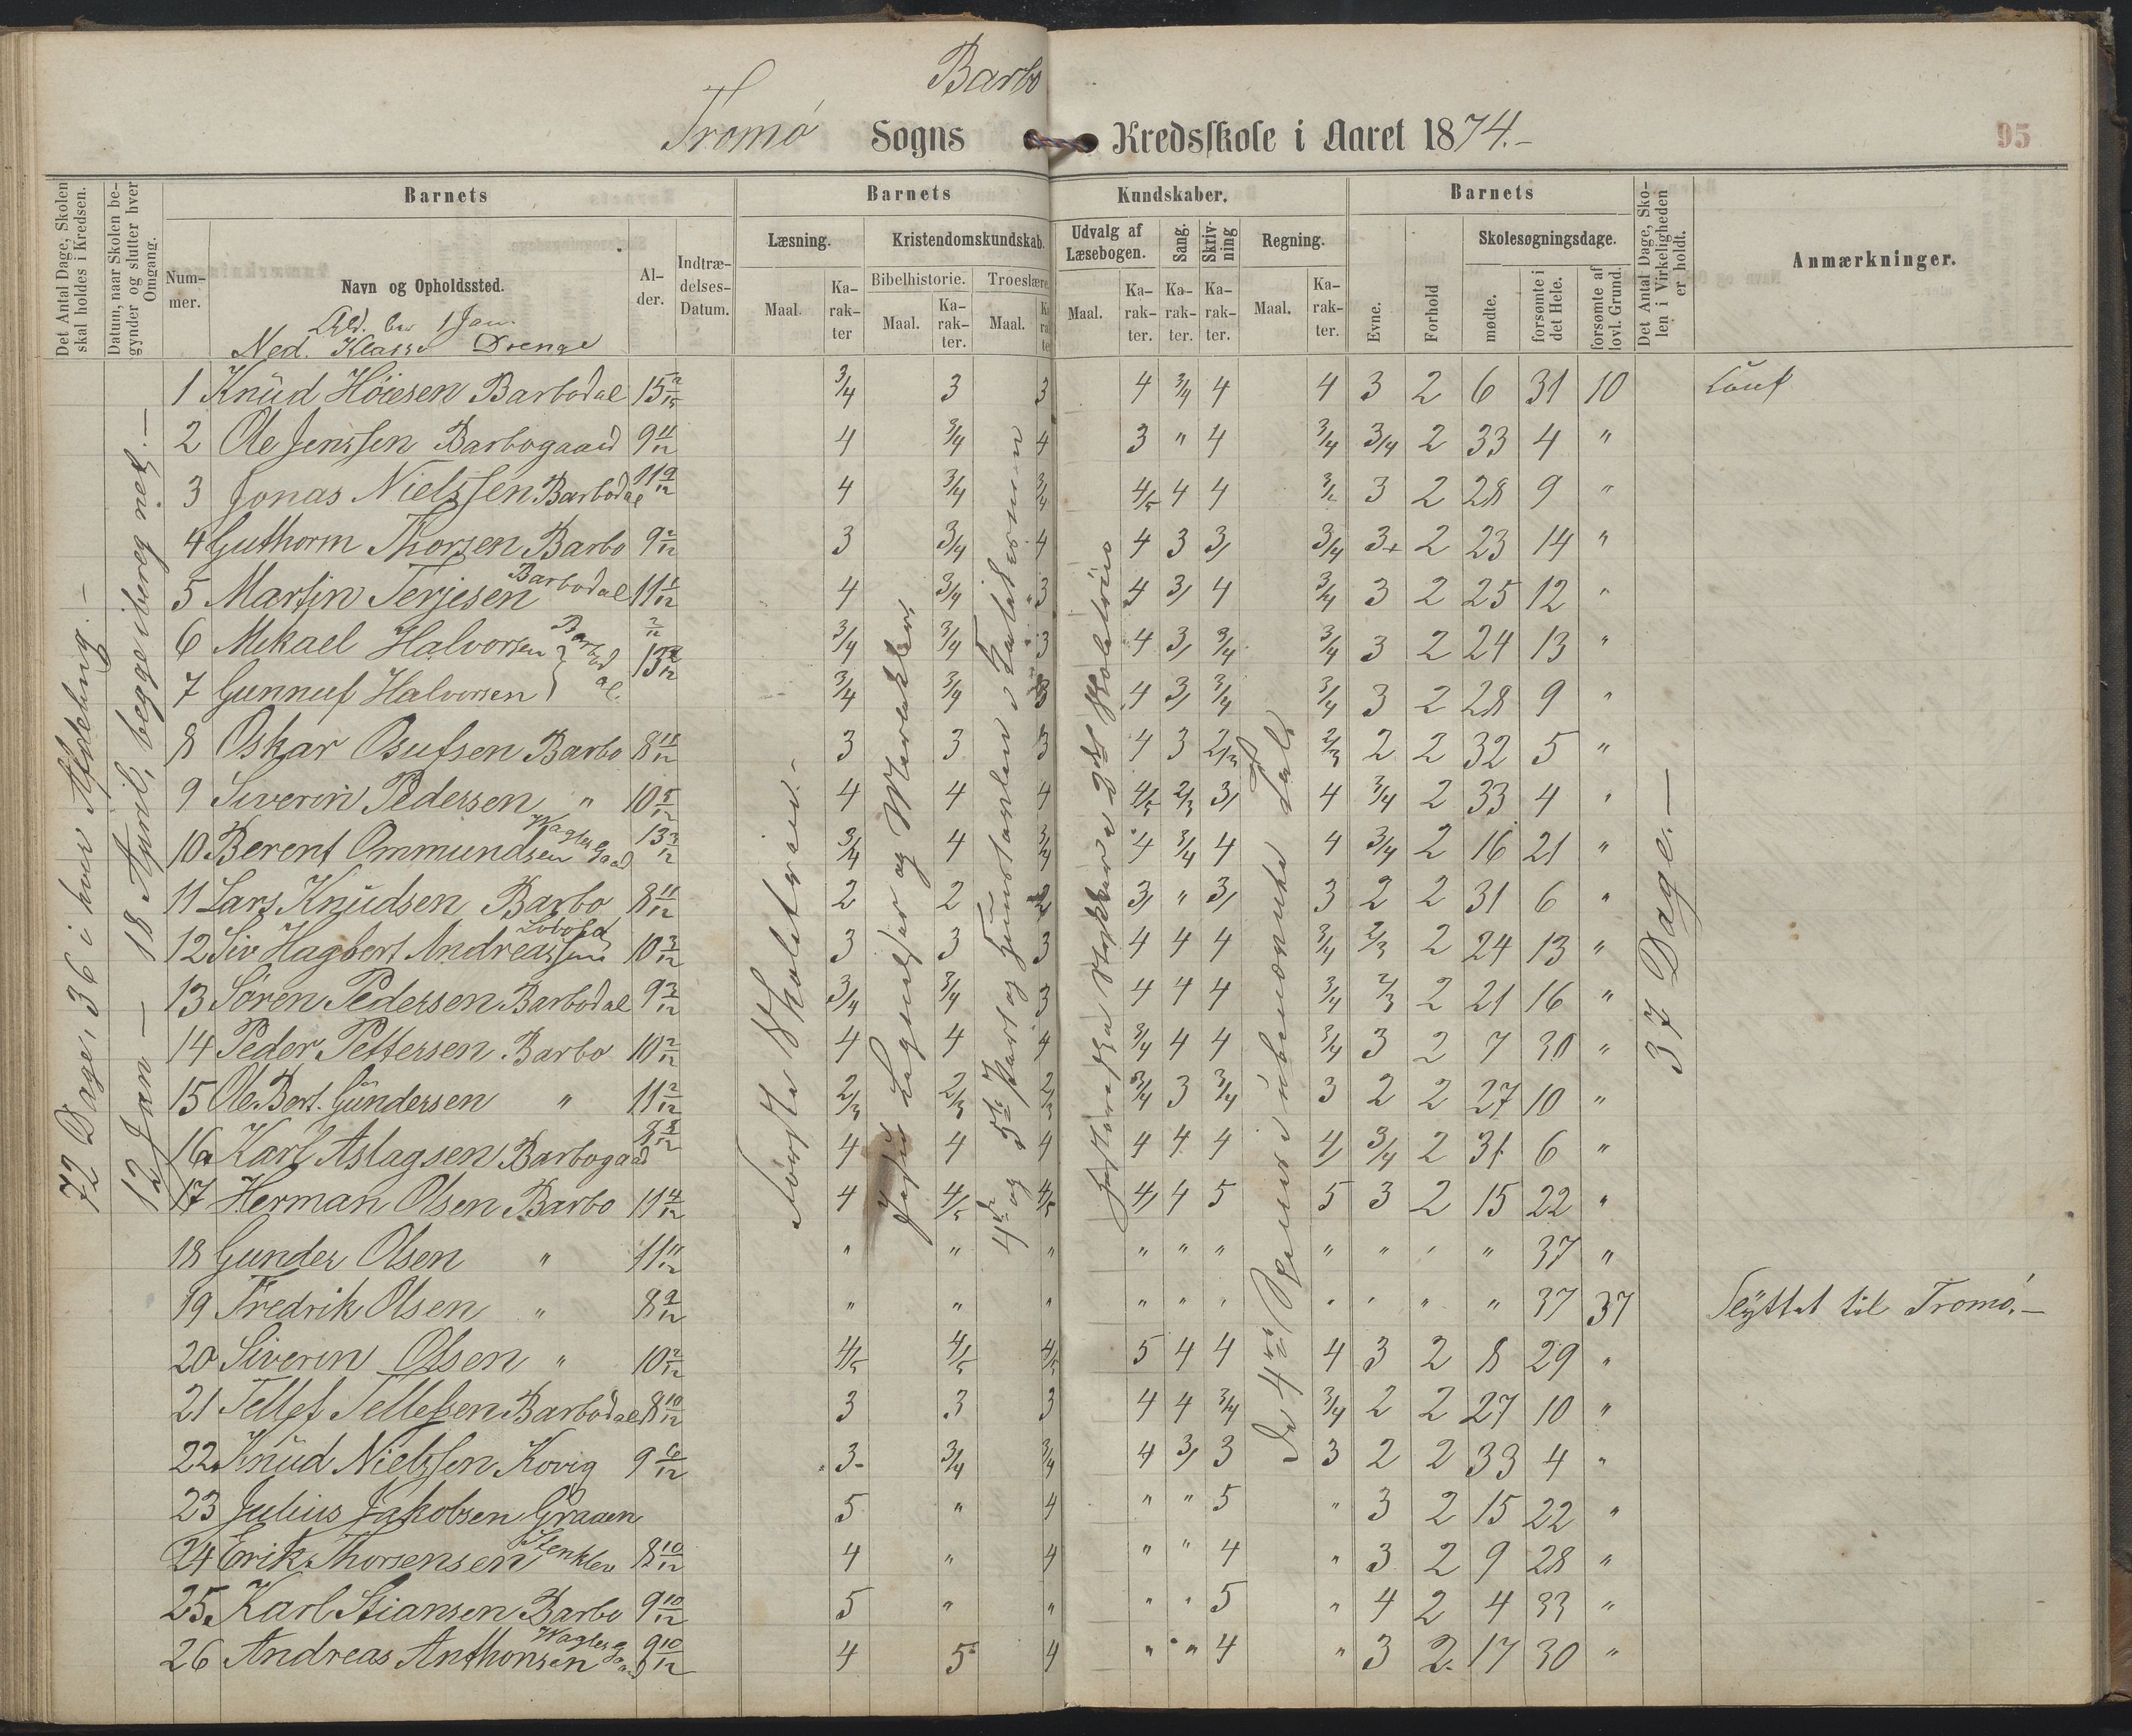 Barbo
Tromø Sogns Kredsskole i Aaret 1874.–
95
Det Antal Dage, Skolen skal holdes i Kredsen.
Datum, naar Skolen begynder og slutter hver Omgang.
Barnets
Nummer.
Navn og Opholdssted.
Alder.
Indtrædelses-Datum.
Barnets Kundskaber.
Læsning.
Maal.
Karakter
Kristendomskundskab.
Bibelhistorie.
Maal.
Karakter.
Troeslære
Maal.
Udvalg af Læsebogen.
Maal.
Karakter.
Sang.
Karakter.
Skrivning
Karakter.
Regning.
Maal.
Karakter.
Barnets
Evne.
Forhold
Skolesøgningsdage.
mødte.
forsømte i det Hele.
forsømte af lovl. Grund.
Det Antal Dage, Skolen i Virkeligheden er holdt.
Anmærkninger.
1 Jan.
Ned. Klasse Drenge
72 Dage, 36 i hver Afdeling.–
12 Jan – 18 April, begge iberegnet.–
37 Dage.–
1 Knud Høiesen Barbodal 3/4 3 3 4 3/4 4 4 3 2 6 31 10
2 Ole Jenssen Barbogaard 9 11/12 4 3/4 4 3 " 4 3/4 3/4 2 33 4 "
3 Jonas Nielssen Barbodal 11 9/12 4 3/4 3/4 4/5 4 4 3 2 28 9 "
4 Guthorm Thorsen Barbo 9 2/12 3 3/4 4 4 3 3/ 3/4 3+ 2 23 14 "
5 Martin Terjesen Barbodal 4 3/4 3 4 3/ 4 3/4 3 2 25 12 "
6 Mikael Halvorsen Barbodal 3/4 3/4 3 4 3/ 3/4 3/4 3 2 24 13 "
7 Gunnuf Halvorsen 3/4 3/4 3 4 3/ 3/4 3/4 3 2 28 9 "
8 Oskar Osufsen Barbo 8 11/12 3 3 3 4 3 2/3 2/3 2 2 32 5 "
9 Siverin Pedersen " 10 5/12 4 4 4 4/5 2/3 3/ 4 3/4 2 33 4 "
10 Berent Ommundsen 13 3/12 3/4 4 3/4 4 3/4 4 4 3/4 2 16 21 "
11 Lars Knudsen Barbo 8 11/12 2 2 2 3/ " 3/ 3 2 2 31 6 "
12 Siv Hagbert Andreassen 10 3/12 3 3 3 4 4 4 3/4 2/3 2 24 13 "
13 Søren Pedersen Barbodal 9 3/12 3/4 3/4 3 4 4 4 3/4 2/3 2 21 16 "
14 Peder Pettersen Barbo 10 2/12 4 4 4 3/4 4 4 3/4 3 2 7 30 "
15 Ole Bert. Gundersen " 11 2/12 2/3 2/3 2/3 3/4 3 3/4 3 2 2 27 10 "
16 Karl Aslagsen Barbogaard 4 4 4 4 4 4 4/ 3/4 2 31 6 "
17 Herman Olsen Barbo 11 4/12 4 4/5 4/5 4/ 4 5 5 3 2 15 22 "
18 Gunder Olsen " 11 11/12 " " " " " " " " " " 37 "
19 Fredrik Olsen " 8 9/12 " " " " " " " " " " 37 37 Flyttet til Tromø.–
20 Siverin Olsen " 10 2/12 4/5 4/5 4/5 5 4 4 4 3 2 8 29 "
21 Tellef Tellefsen Barbodal 8 10/12 3 3 3 4 4 3/4 3/4 2 2 27 10 "
22 Knud Nielssen Kovig 9 6/12 3 3/4 3/4 4 3/ 3 3 2 2 33 4 "
23 Julius Jakobsen Graaen 5 " 4 " " 5 " 3 2 15 22 "
24 Erik Thorsensen Stenklev 8 10/12 4 " 4 " " 4 " 3 2 9 28 "
25 Karl Stiansen Barbo 9 10/12 5 " " " " 5 " 4 2 4 33 "
26 Andreas Anthonsen 9 10/12 4 5 4 " " 4 " 3 2 17 30 "